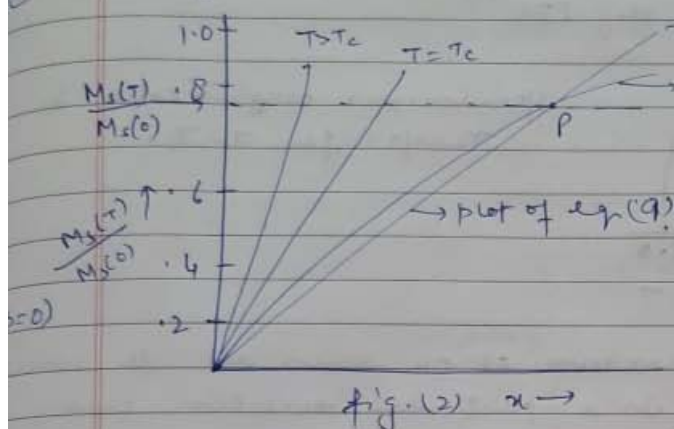 1.0
T>Tc
T = Tc
T
Ms(T)
Ms(0)
.8
P
.6
Ms(T)
Ms(0)
→ plot of eq (9)
.4
=0)
.2
fig. (2) x →